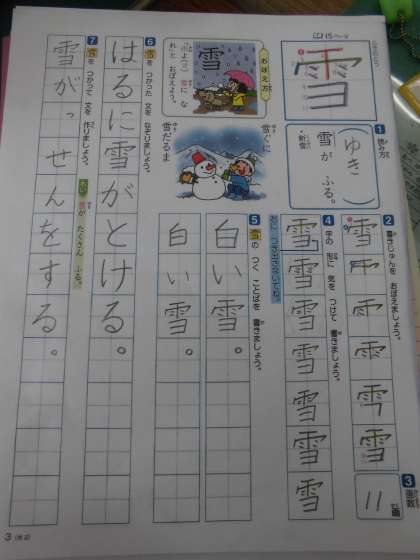 15ページ
雪
1 読み方
(ゆき)
雪が ふる。
・新雪
おぼえ方
雪
雪に
雪ぐに
雪だるま
2 書きじゅんを おぼえましょう。
雪
3 画数
11画
4 字の 形に 気を つけて 書きましょう。
雪雪雪雪雪雪雪
右に つき出さないでね。
5 雪の つく ことばを 書きましょう。
白い雪。
白い雪。
6 雪を つかった 文を なぞりましょう。
はるに雪がとける。
7 雪を つかって 文を 作りましょう。
雪が たくさん ふる。
雪がっせんをする。
3